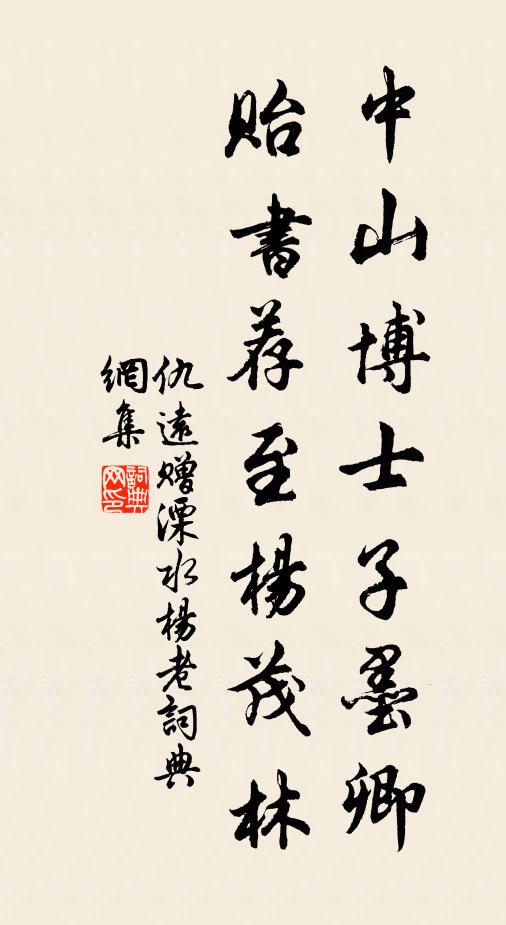 中山博士子墨卿
貽書荐至楊茂林
仇遠赠溧水楊老詞典
網集
詞典網印